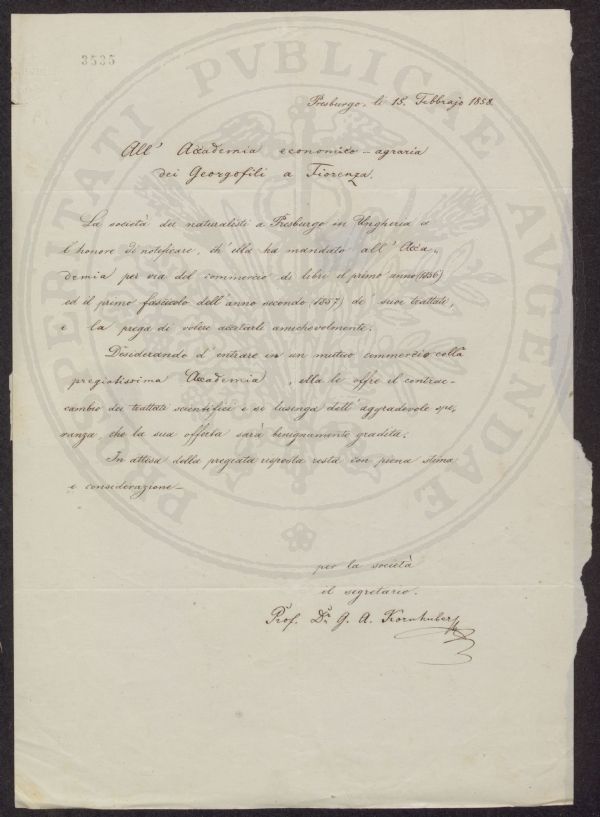 3535
PROSPERITATI PVBLICAE AVGENDAE
Presburgo, li 15. Febbrajo 1858.
All' Accademia economico-agraria
dei Georgofili a Fiorenza.
La società dei naturalisti a Presburgo in Ungheria a
l'honore di notificare, ch' ella ha mandato all' Acca-
demia per via del commercio di libri il primo anno (1856)
ed il primo fascicolo dell' anno secondo (1857) de' suoi trattati,
e la prega di volere accetarli amichevolmente.
Desiderando d' entrare in un mutuo commercio colla
pregiatissima Accademia, ella le offre il contrac-
cambio dei trattati scientifici e si lusinga dell' aggradevole spe-
ranza che la sua offerta sarà benignamente gradita.
In attesa della pregiata risposta resta con piena stima
e considerazione –
per la società
il segretario.
Prof. Dr. G. A. Kornhuber